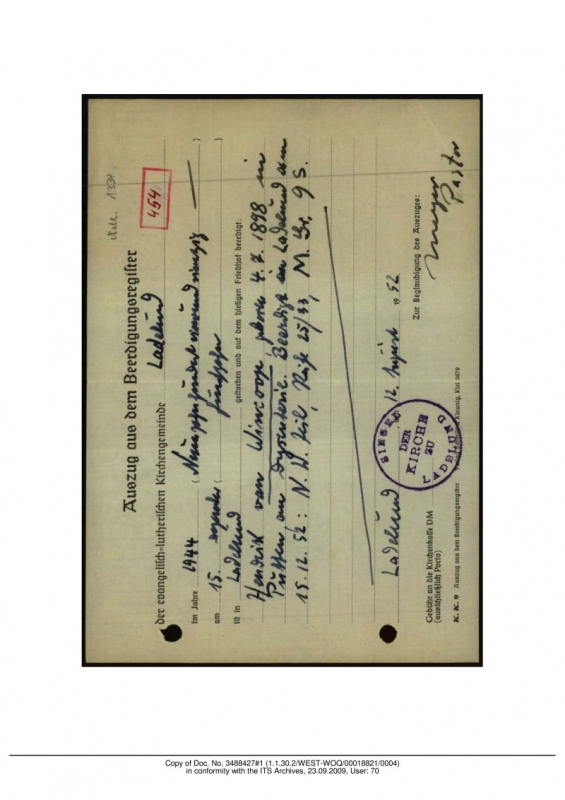 Nr. 1334
454
Auszug aus dem Beerdigungsregister
der evangelisch-lutherischen Kirchengemeinde Ladelund
Im Jahre 1944 (
am 15.
ist in Ladelund gestorben und auf dem hiesigen Friedhof beerdigt:
Hendrik van Wincoop, geboren 4.7.1898 in
Putten, an Dysenterie. Beerdigt in Ladelund am
15.12. : N. W. Teil, 25/33, M. 9 S.
Ladelund 12. August 1952
SIEGEL DER KIRCHE ZU LADELUND
Zur Beglaubigung des Auszuges:
Meyer
Pastor
Gebühr an die Kirchenkasse DM
(ausschließlich Porto)
K. K. 9 Auszug aus dem Beerdigungsregister
Copy of Doc. No. 3488427#1 (1.1.30.2/WEST-WOQ/00018821/0004)
in conformity with the ITS Archives, 23.09.2009, User: 70